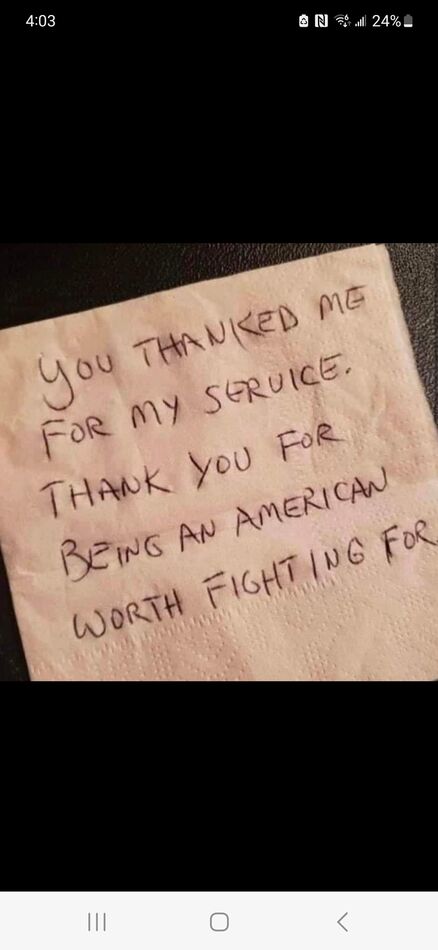 4:03 24%
YOU THANKED ME
FOR MY SERVICE.
THANK YOU FOR
BEING AN AMERICAN
WORTH FIGHTING FOR